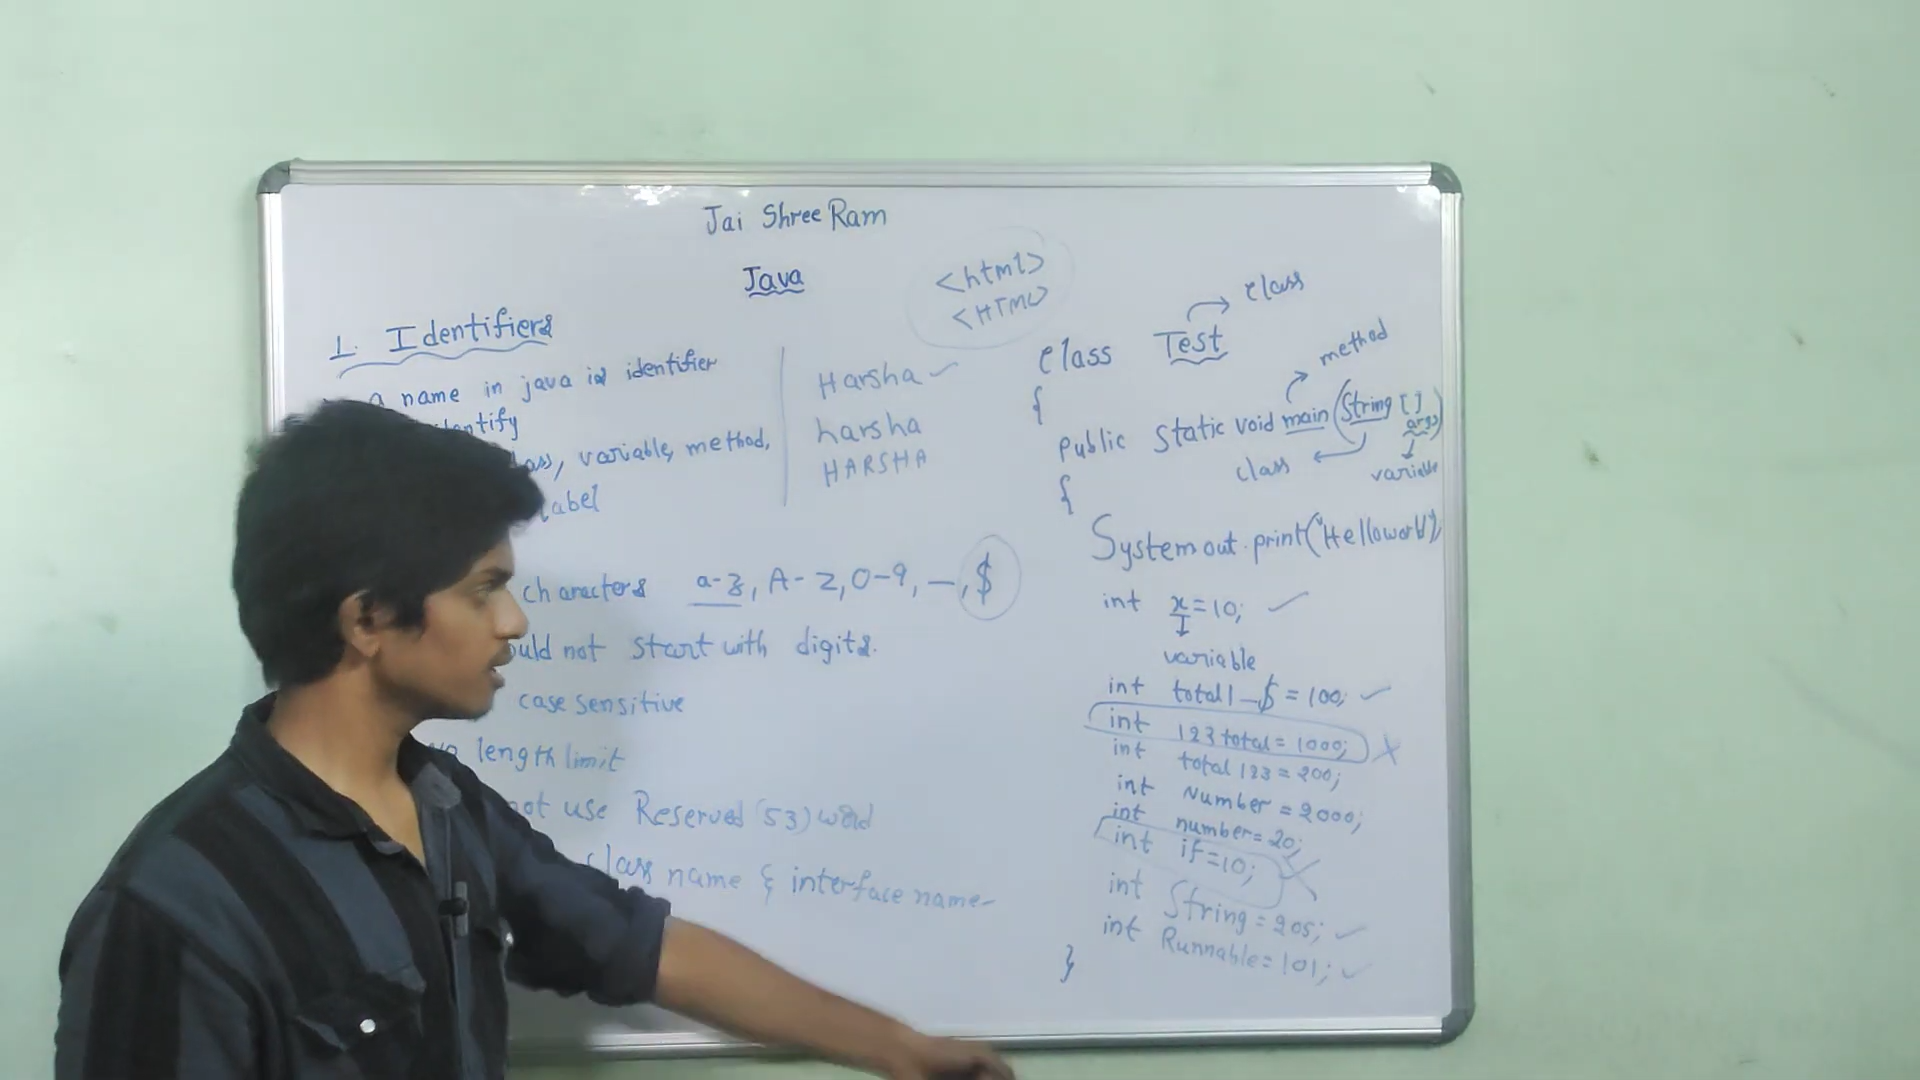 Jai Shree Ram
Java
1. Identifiers
a name in java is identifier
entify
ass, variable, method,
label
characters a-z, A-Z, 0-9, _, $
ould not start with digits.
case sensitive
no length limit
not use Reserved (53) word
class name & interface name
Harsha ✓
harsha
HARSHA
<html>
<HTML>
class Test → class
{
method
public static void main (String [] args)
class
variable
{
System out.print("Helloworld")
int x=10; ✓
variable
int total1_$ = 100; ✓
int 123total = 1000; ✗
int total123 = 200;
int Number = 2000;
int number = 20;
int if=10; ✗
int String = 205; ✓
int Runnable = 101; ✓
}